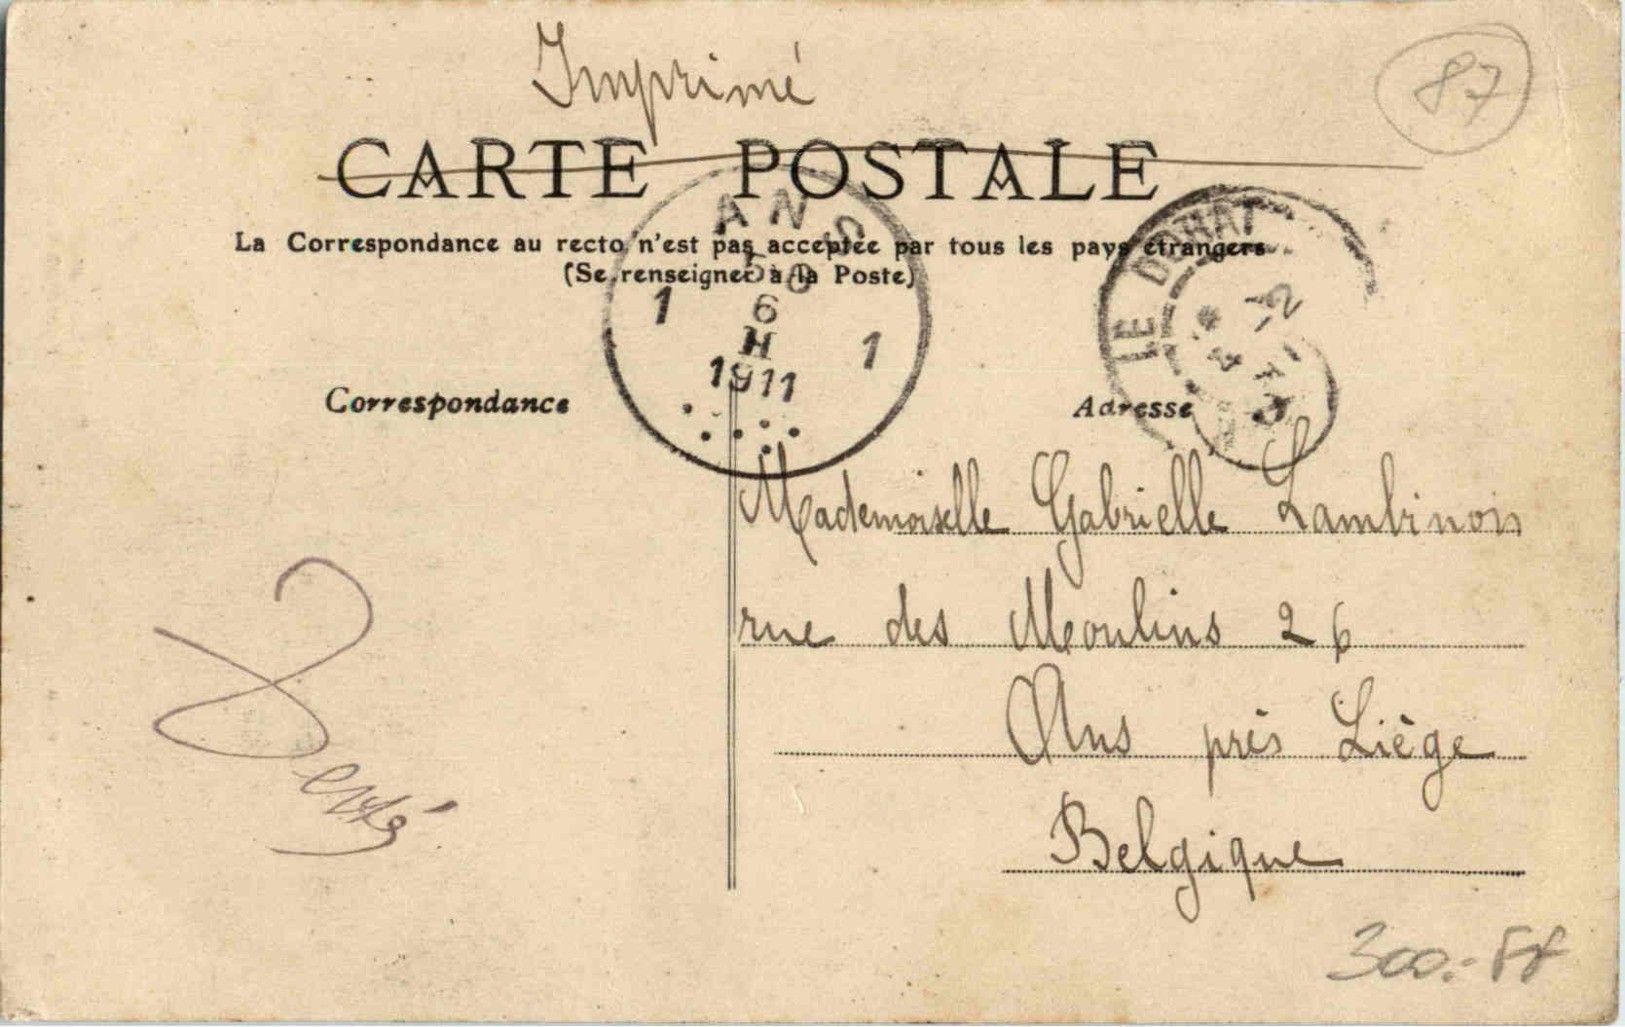 Imprimé
87
CARTE POSTALE
La Correspondance au recto n'est pas acceptée par tous les pays étrangers
(Se renseigner à la Poste)
ANS
1 6 1
H
1911
LE DORAT
Correspondance
Adresse
Mademoiselle Gabrielle Lambinon
rue des Moulins 26
Ans près Liège
Belgique
300.-